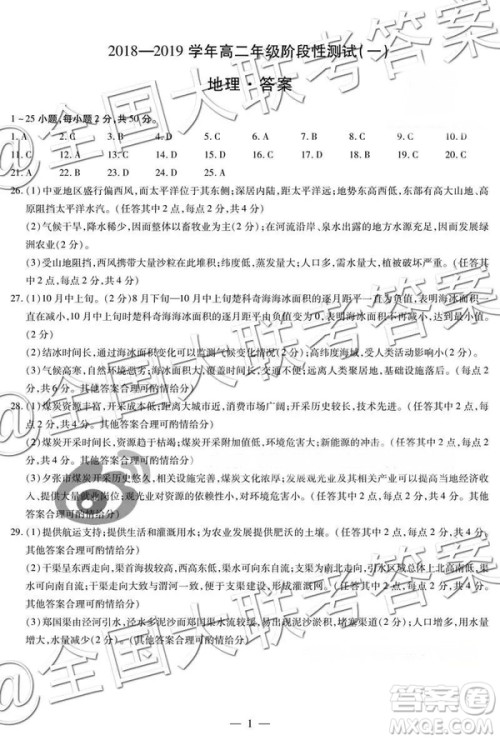 2018—2019 学年高二年级阶段性测试(一)
地理·答案
1-25 小题,每小题 2 分,共 50 分。
1. A 2. C 3. B 4. D 5. B 6. D 7. C 8. C 9. C 10. D
11. C 12. D 13. A 14. D 15. A 16. C 17. A 18. B 19. C 20. D
21. A 22. C 23. D 24. D 25. D
26. (1)中亚地区盛行偏西风,而太平洋位于其东部;深居内陆,距离太平洋远;地势东高西低,东部的高山、高
原阻挡太平洋水汽。(任答其中 2 点,每点 2 分,共 4 分)
(2)气候干旱,降水稀少(2 分),农业整体以畜牧业为主(2 分);在河流沿岸、泉水出露的地方水源充足,发展绿
洲农业(2 分)。
(3)受山地阻挡,西风携带的大量沙粒在此沉积(2 分);气候干旱,蒸发量大;人口多,植被破坏严重。(任答
其中 1 点,2 分)
27. (1)10 月中上旬。(2 分)8 月下旬—10 月中上旬楚科奇海海冰面积的逐月距平一直为负值,而且负值一
直在减小,10 月中上旬楚科奇海海冰面积的逐月距平达到最小值,说明此时海冰面积最小,不再融化。(4
分)
(2)海冰近似静止,通过海冰面积变化可以监测气候变化情况(2 分);高纬度海域,人类活动影响小(2 分)。
(3)气候高寒,自然环境恶劣;海冰面积大,覆盖时间长;缺乏科考基础设施;陆地距离远。(任答其中 2 点,
每点 2 分,共 4 分。其他答案合理可酌情给分)
28. (1)煤炭资源丰富,开采成本低;距离大城市近,消费市场广阔;开采历史较长,技术力量雄厚。(任答其中
2 点,每点 2 分,共 4 分。其他答案合理可酌情给分)
(2)煤炭开采历史长,资源趋于枯竭;煤炭开采导致生态环境问题严重;新能源的冲击。(任答其中 2 点,每
点 2 分,共 4 分。其他答案合理可酌情给分)
(3)夕张市煤炭开采历史悠久,煤炭文化底蕴深厚;发展观光业及其相关产业,可以提高当地经济收入,增加
就业人口数量;观光业对矿产资源的依赖性小,可持续性强。(任答其中 2 点,每点 2 分,共 4 分。其他答案
合理可酌情给分)
29. (1)提供航运支持;提供生活和灌溉水源;为农业发展提供肥沃的土壤。(任答其中 2 点,每点 2 分,共 4 分。
其他答案合理可酌情给分)
(2)干渠呈东西走向,渠首海拔高于渠尾,导致引水渠总体水流方向为自西向东(2 分);引水区域在干渠以
南,干渠的整体走向大致与渭河一致,便于支渠建设,且支渠水流方向为自北向南(2 分)。(其他答案合理
可酌情给分)
(3)郑国渠由泾河引水,泾河水多泥沙而郑国渠流速小,导致泥沙淤积,影响引水。(4 分。其他答案合理可
酌情给分)
— 1 —
全国大联考答案
全国大联考答案
全国大联考答案
答案圈
MXQE.COM